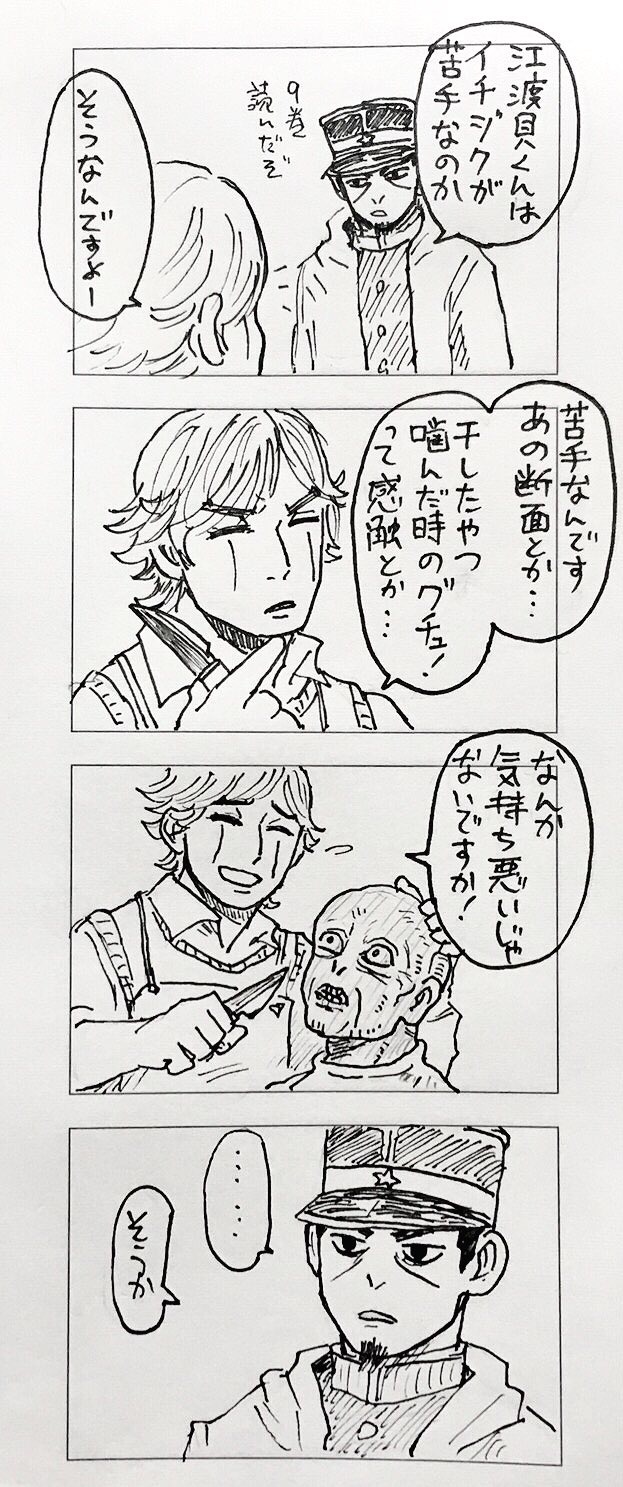 江渡貝くんは
イチジクが
苦手なのか
9巻
読んだぞ
そうなんですよー
苦手なんです
あの断面とか…
干したやつ
噛んだ時のグチュ!
って感触とか…
なんか
気持ち悪いじゃ
ないですか!
……
そうか